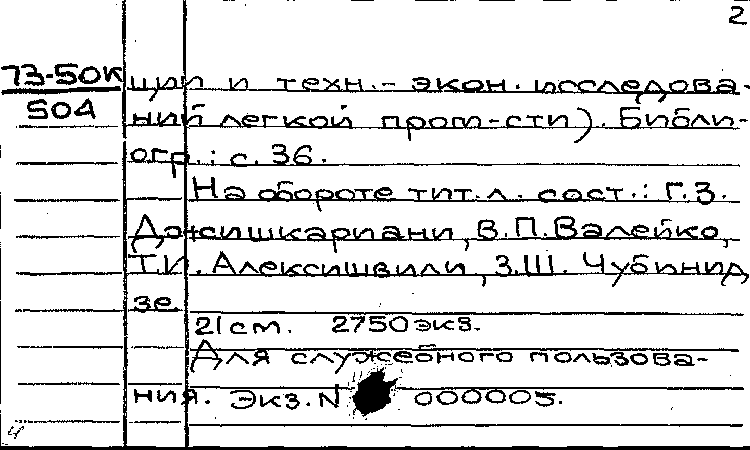 2
73-50К
504
ции и техн.- экон. исследова-
ний легкой пром-сти). Библи-
огр.: с. 36.
На обороте тит. л. сост.: Г.З.
Джишкариани, В.П. Валейко,
Т.И. Алексишвили, З.Ш. Чубинид
зе.
21 см. 2750 экз.
Для служебного пользова-
ния. Экз. N 000005.
4